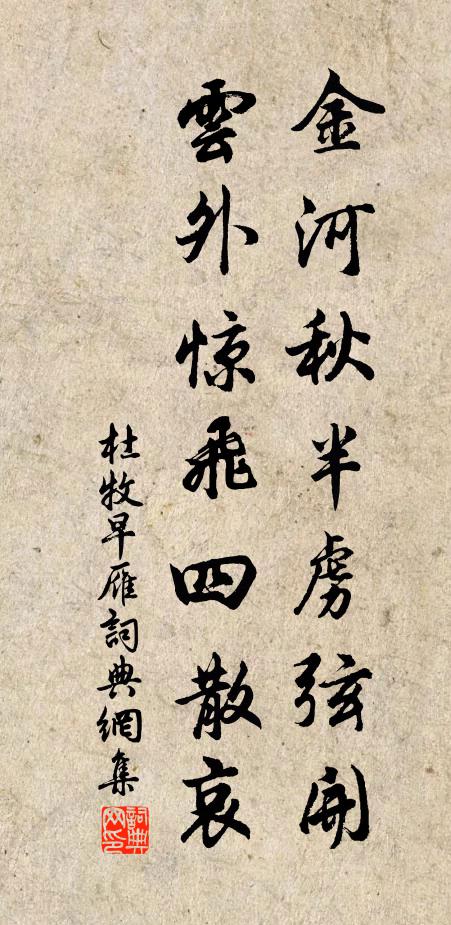 金河秋半虜弦開
雲外惊飛四散哀
杜牧早雁詞典網集
詞典网印